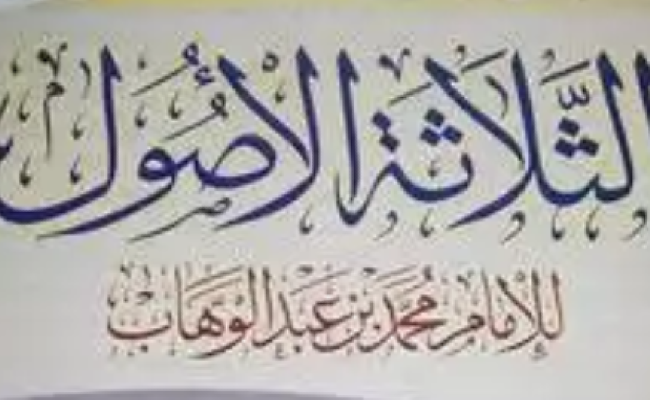 الثَّلَاثَةُ الْأُصُولُ
لِلْإِمَامِ مُحَمَّد بْنِ عَبْدِ الْوَهَّابِ